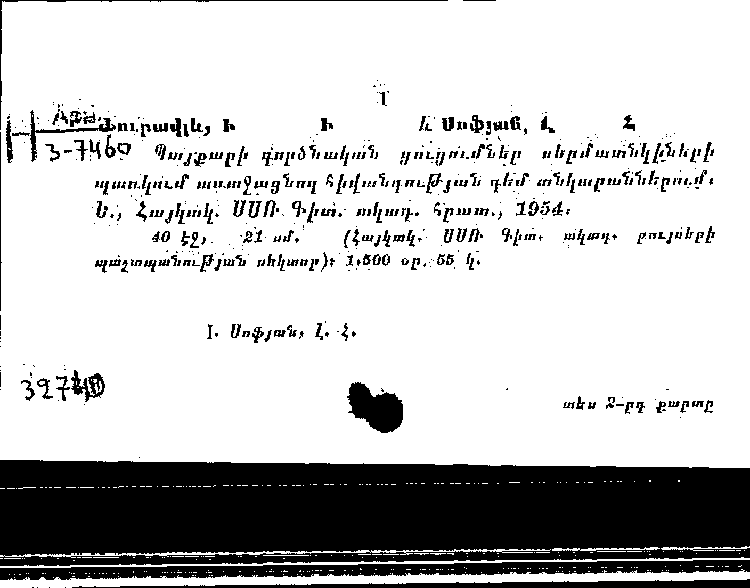 I
Ժուրավլև, Ի Ի և Սոֆյան, Լ. Հ
3-7460 Պայքարի գործնական ցուցումներ սերմատնկիների
պառկում առաջացնող հիվանդության դեմ տնկարաններում։
Ե., Հայկակ. ՍՍՌ Գիտ. ակադ. հրատ., 1954։
40 էջ, 21 սմ. (Հայկակ. ՍՍՌ Գիտ. ակադ. բույսերի
պաշտպանության սեկտոր)։ 1.500 օր. 55 կ.
I. Սոֆյան, Լ. Հ.
տես 2-րդ քարտը